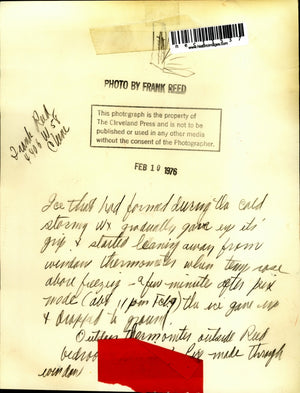 PHOTO BY FRANK REED
This photograph is the property of
The Cleveland Press and is not to be
published or used in any other media
without the consent of the Photographer.
Frank Reed
W 58
Cleve
FEB 19 1976
Ice that had formed during the cold
stormy wx gradually gave up its'
grip & started leaning away from
window thermometer when temp rose
above freezing - a few minutes after pix
made (abt 11 pm Feb) the ice gave up
& dropped to ground.
Outdoor thermometer outside Reed
bedroom made through
window